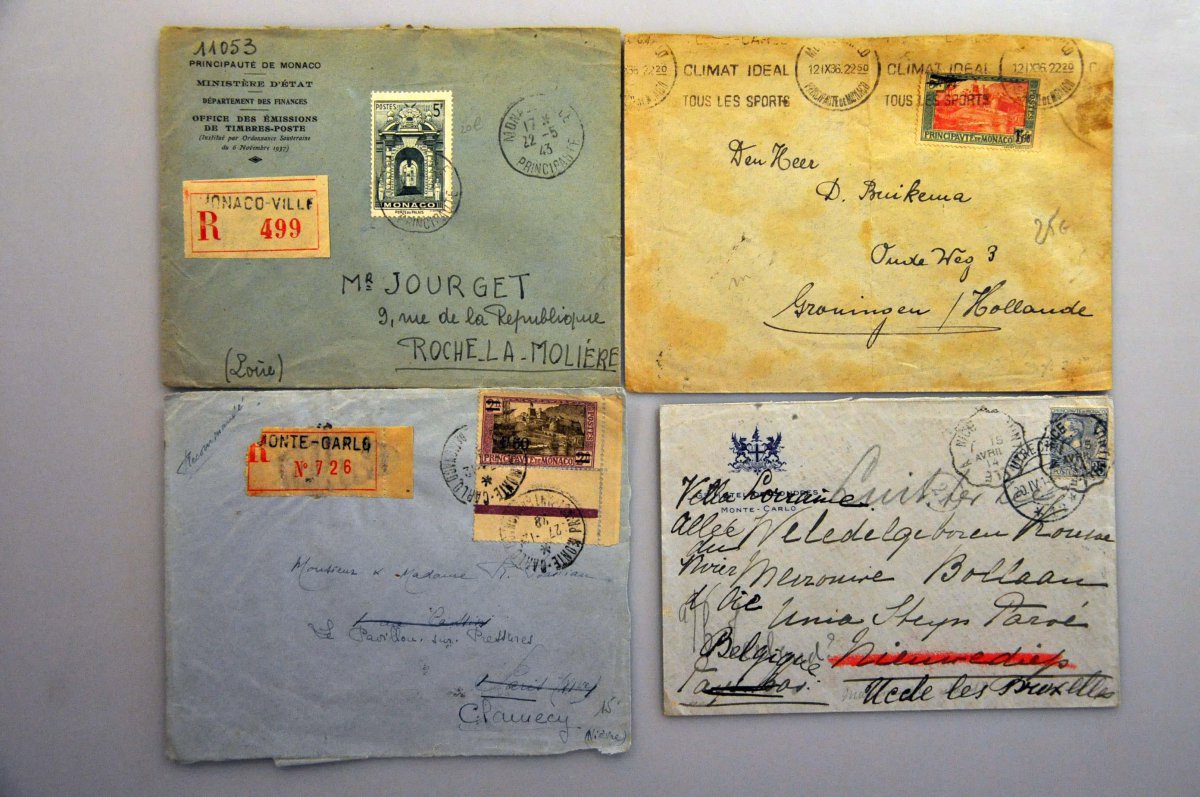 11053
PRINCIPAUTÉ DE MONACO
MINISTÈRE D'ÉTAT
DÉPARTEMENT DES FINANCES
OFFICE DES ÉMISSIONS
DE TIMBRES-POSTE
(Institué par Ordonnance Souveraine
du 6 Novembre 1937)
MONACO-VILLE
R 499
POSTES 5F
MONACO
17
22-5
43
PRINCIPAUTÉ
PRINCIPAUTÉ
MR JOURGET
9, rue de la République
ROCHE-LA-MOLIÈRE
(Loire)
CLIMAT IDEAL
TOUS LES SPORTS
12 IX 36. 22 50
PRINCIPAUTÉ DE MONACO
CLIMAT IDEAL
TOUS LES SPORTS
12 IX 36. 22 50
PRINCIPAVTÉ DE MONACO
Den Heer
D. Buikema
Oude Weg 3
Groningen / Hollande
Recommandé
MONTE-CARLO
R
N° 726
PRINCIPAVTÉ DE MONACO
MONTE-CARLO
27-12
MONTE-CARLO
Monsieur & Madame
Le Pavillon sur Pressures
Clamecy
15
(Nièvre)
MONTE-CARLO
15
AVRIL
14
UTRECHT
Villa Lorraine
allée
du
Vivier
d'Oie
Belgique
Weledelgeboren Vrouwe
Mevrouwe Bollaan
Unia Steyn Parvé
Nieuwediep
Uccle les Bruxelles